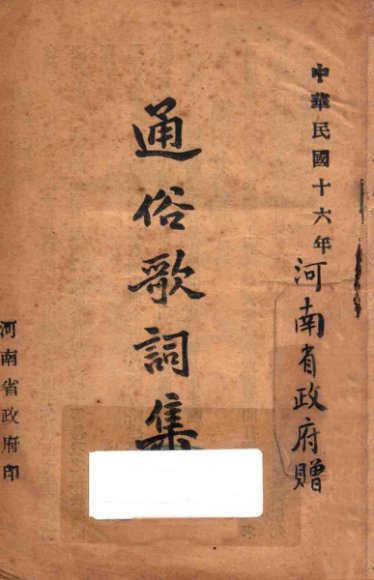 中華民國十六年
河南省政府贈
通俗歌詞集
河南省政府印